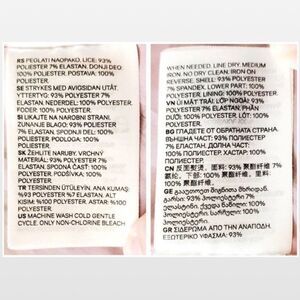 RS PEGLATI NAOPAKO. LICE: 93%
POLIESTER 7% ELASTAN. DONJI DEO:
100% POLIESTER. POSTAVA: 100%
POLIESTER.
SE STRYKES MED AVIGSIDAN UTÅT.
YTTERTYG: 93% POLYESTER 7%
ELASTAN. NEDERDEL: 100% POLYESTER.
FODER: 100% POLYESTER.
SI LIKAJTE NA NAROBNI STRANI.
ZUNANJE BLAGO: 93% POLIESTER 7%
ELASTAN. SPODNJI DEL: 100%
POLIESTER. PODLOGA: 100%
POLIESTER.
SK ŽEHLITE NARUBY. VRCHNÝ
MATERIÁL: 93% POLYESTER 7%
ELASTAN. SPODNÁ ČASŤ: 100%
POLYESTER. PODŠÍVKA: 100%
POLYESTER.
TR TERSİNDEN ÜTÜLEYİN. ANA KUMAŞ:
%93 POLYESTER %7 ELASTAN. ALT
KISIM: %100 POLYESTER. ASTAR: %100
POLYESTER.
US MACHINE WASH COLD GENTLE
CYCLE. ONLY NON-CHLORINE BLEACH
WHEN NEEDED. LINE DRY. MEDIUM
IRON. NO DRY CLEAN. IRON ON
REVERSE. SHELL: 93% POLYESTER
7% SPANDEX. LOWER PART: 100%
POLYESTER. LINING: 100% POLYESTER.
VN ỦI MẶT TRÁI. LỚP NGOÀI: 93%
POLYESTER 7% ELASTAN. PHẦN
DƯỚI: 100% POLYESTER. LÓT: 100%
POLYESTER.
BG ГЛАДЕТЕ ОТ ОБРАТНАТА СТРАНА.
ВЪНШНА ЧАСТ: 93% ПОЛИЕСТЕР
7% ЕЛАСТАН. ДОЛНА ЧАСТ:
100% ПОЛИЕСТЕР. ХАСТАР: 100%
ПОЛИЕСТЕР.
CN 反面熨烫。面料: 93% 聚酯纤维 7%
氨纶。下部: 100% 聚酯纤维。里料: 100%
聚酯纤维。
GE
93% 7%
100%
100%
GR ΣΙΔΕΡΩΜΑ ΑΠΟ ΤΗΝ ΑΝΑΠΟΔΗ.
ΕΞΩΤΕΡΙΚΟ ΥΦΑΣΜΑ: 93%